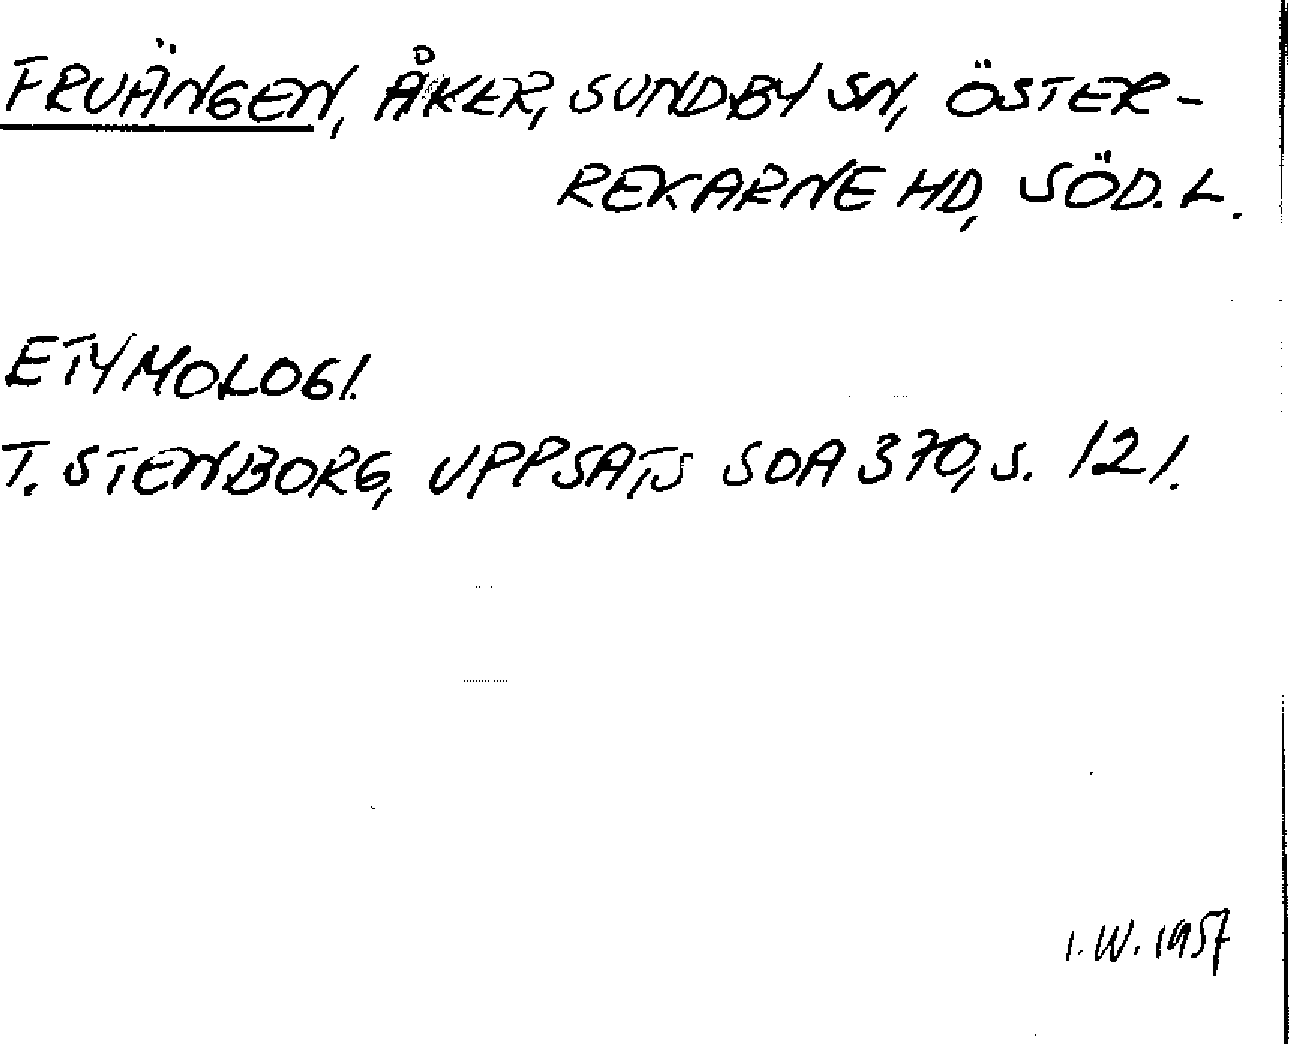 FRUÄNGEN, ÅKER, SUNDBY SN, ÖSTER-
REKARNE HD, SÖD. L.
ETYMOLOGI.
T. STENBORG, UPPSATS SOA 370, S. 121.
I. W. 1957